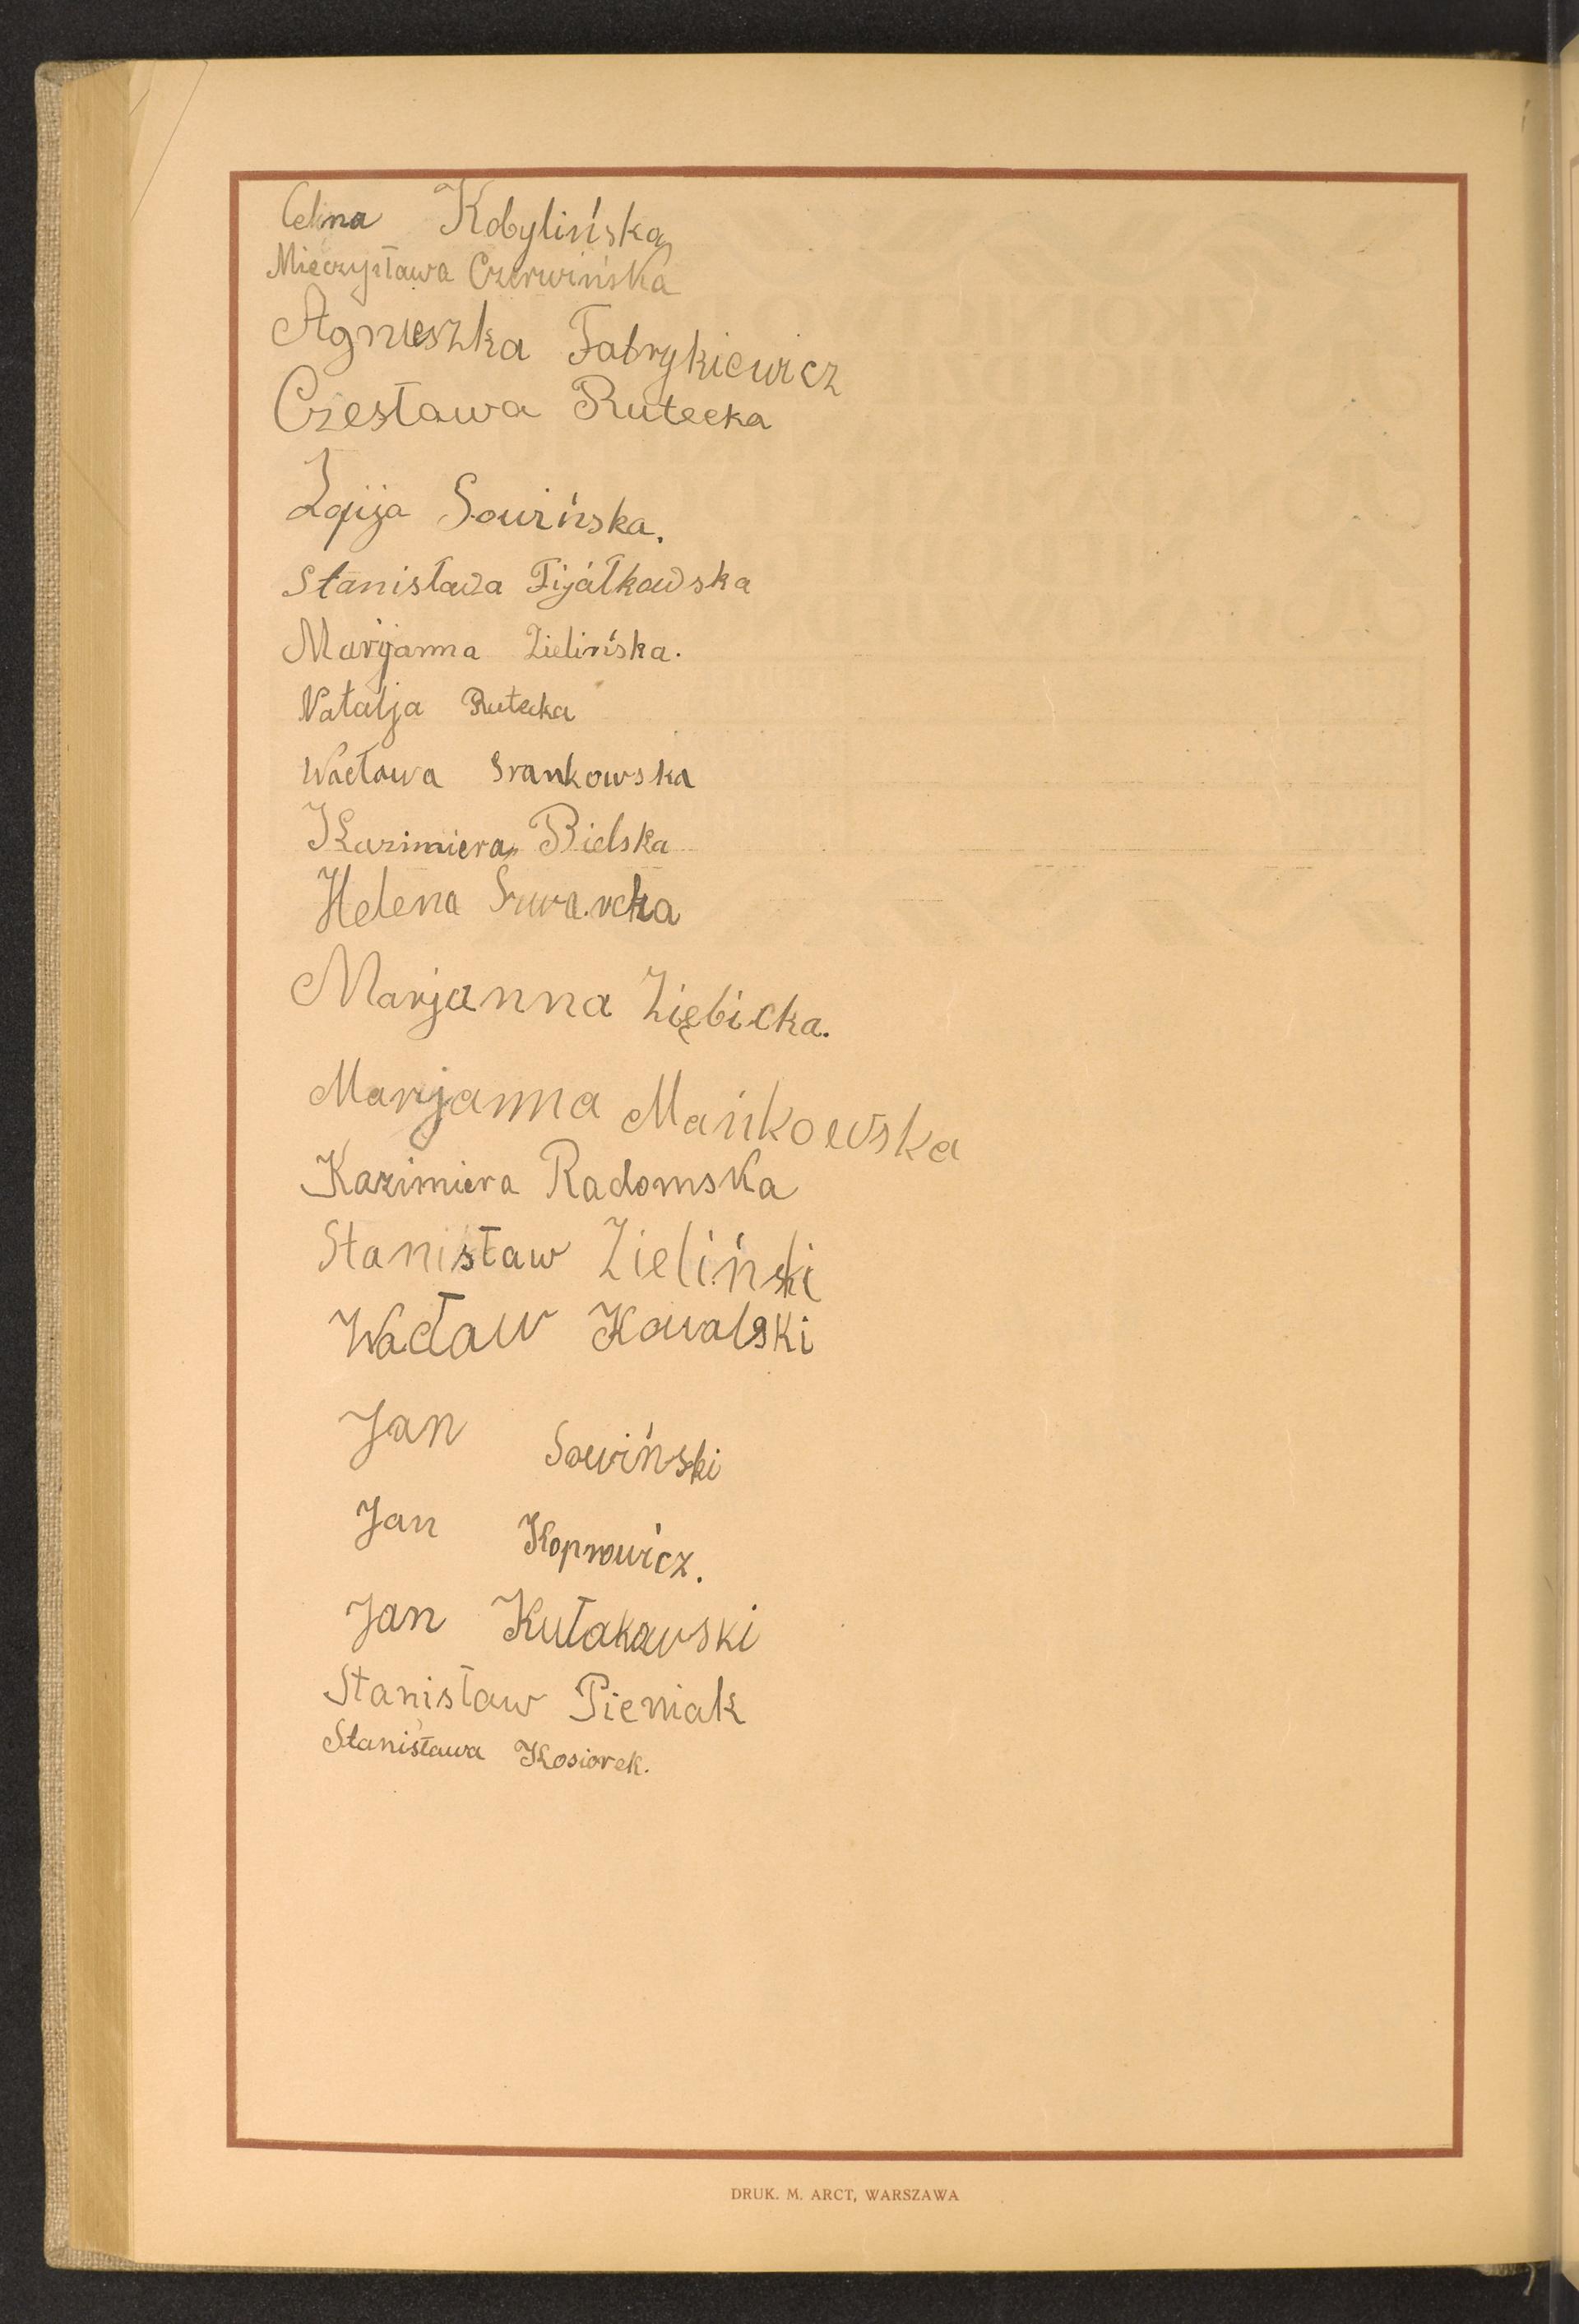 Celina Kobylińska
Mieczysława Czerwińska
Agnieszka Fabrykiewicz
Czesława Rutecka
Zofija Sowińska.
Stanisława Fijałkowska
Marijanna Zielińska.
Natalja Rutecka
Wacława Srankowska
Kazimiera Bielska
Helena
Marjanna Ziębicka.
Marjanna Mańkowska
Kazimiera Radomska
Stanisław Zieliński
Wacław Kowalski
Jan Sowiński
Jan Koprowicz.
Jan Kułakowski
Stanisław Pieniak
Stanisława Kosiorek.
DRUK. M. ARCT, WARSZAWA